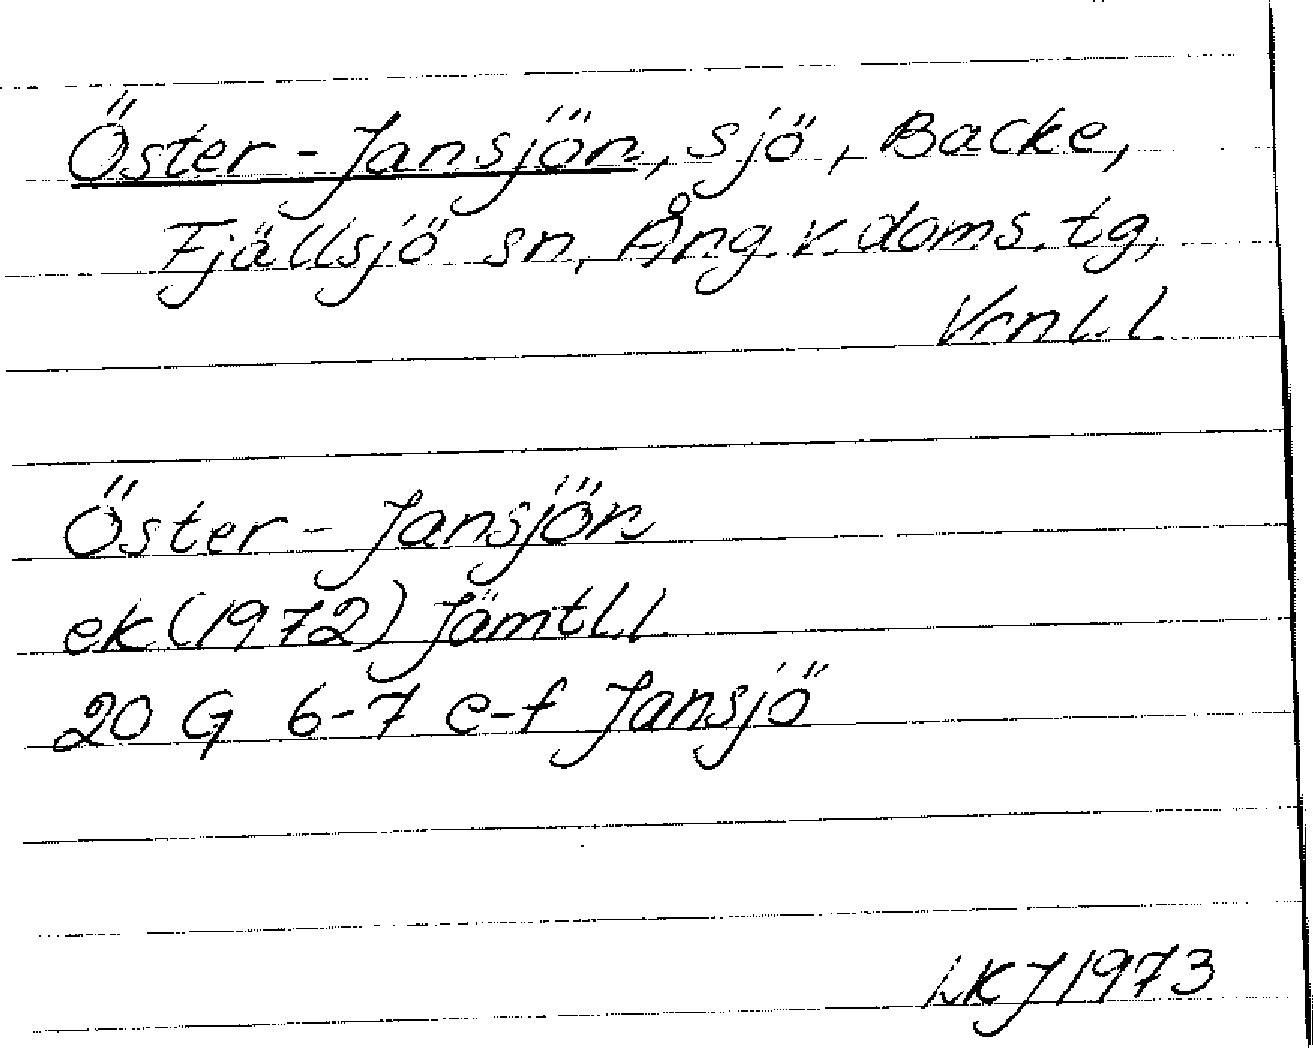 Öster-Jansjön, sjö, Backe,
Fjällsjö sn, Ång.v.doms.tg,
Vrnl.l.
Öster-Jansjön
ek(1972) Jämtl.l.
20 G 6-7 e-f Jansjö
LKJ 1973